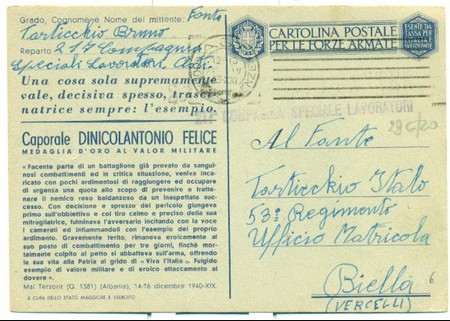 Grado, Cognome e Nome del mittente: Fante
Tarticchio Bruno
Reparto 217 Compagnia
Speciali Lavoratori
Una cosa sola supremamente
vale, decisiva spesso, trasci-
natrice sempre: l'esempio.
Caporale DINICOLANTONIO FELICE
MEDAGLIA D'ORO AL VALOR MILITARE
« Facente parte di un battaglione già provato da sangui-
nosi combattimenti ed in critica situazione, veniva inca-
ricato con pochi ardimentosi di raggiungere ed occupare
di urgenza una quota allo scopo di prevenire e tratte-
nere il nemico reso baldanzoso da un inaspettato suc-
cesso. Con decisione e sprezzo del pericolo giungeva
primo sull'obbiettivo e col tiro calmo e preciso della sua
mitragliatrice, fulminava l'avversario incitando con la voce
i camerati ed infiammandoli con l'esempio del proprio
ardimento. Gravemente ferito, rimaneva eroicamente al
suo posto di combattimento per tre giorni, finché mor-
talmente colpito al petto si abbatteva sull'arma, offrendo
la sua vita alla Patria al grido di « Viva l'Italia ». Fulgido
esempio di valore militare e di eroico attaccamento al
dovere ».
Mai Terzorit (Q. 1381) (Albania), 14-16 dicembre 1940-XIX.
A CURA DELLO STATO MAGGIORE R. ESERCITO
CARTOLINA POSTALE
PER LE FORZE ARMATE
ESENTE DA
TASSA PER
217 COMPAGNIA SPECIALE LAVORATORI
Al Fante
Tarticchio Italo
53º Regimento
Ufficio Matricola
Biella
(VERCELLI)
6